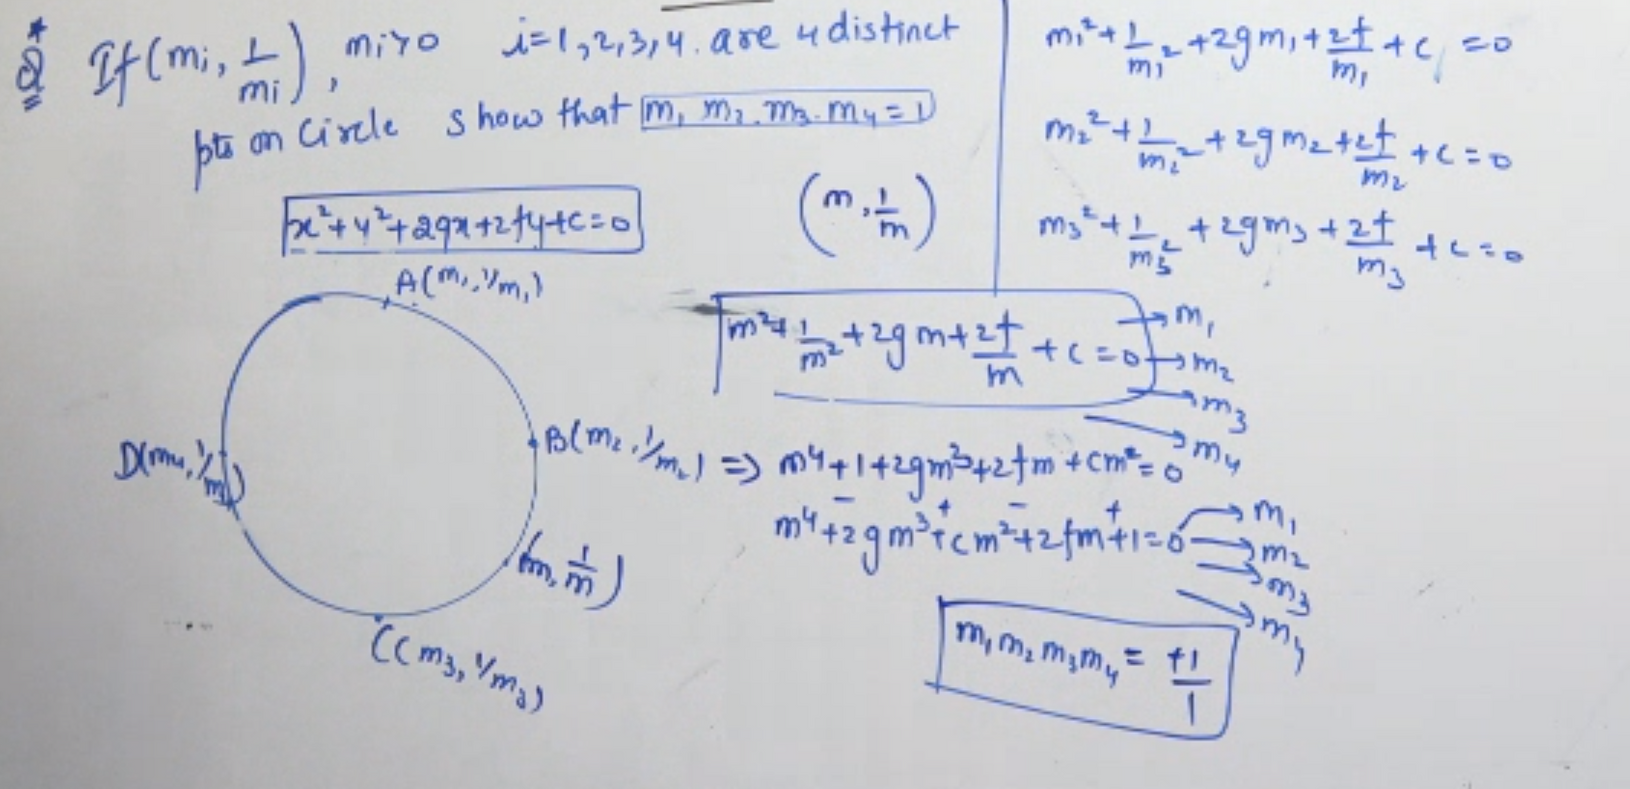 * Q If (mi, 1/mi), mi>0 i=1,2,3,4. are 4 distinct
pts on Circle show that m1 m2. m3. m4 = 1
x²+y²+2gx+2fy+c=0
(m, 1/m)
A(m1, 1/m1)
B(m2, 1/m2)
(m, 1/m)
C(m3, 1/m3)
D(m4, 1/m4)
m1²+1/m1²+2gm1+2f/m1+c=0
m2²+1/m2²+2gm2+2f/m2+c=0
m3²+1/m3²+2gm3+2f/m3+c=0
m²+1/m²+2gm+2f/m+c=0 → m1
→ m2
→ m3
→ m4
⇒ m⁴+1+2gm³+2fm+cm²=0
− + − +
m⁴+2gm³+cm²+2fm+1=0 → m1
→ m2
→ m3
→ m4
m1 m2 m3 m4 = +1/1